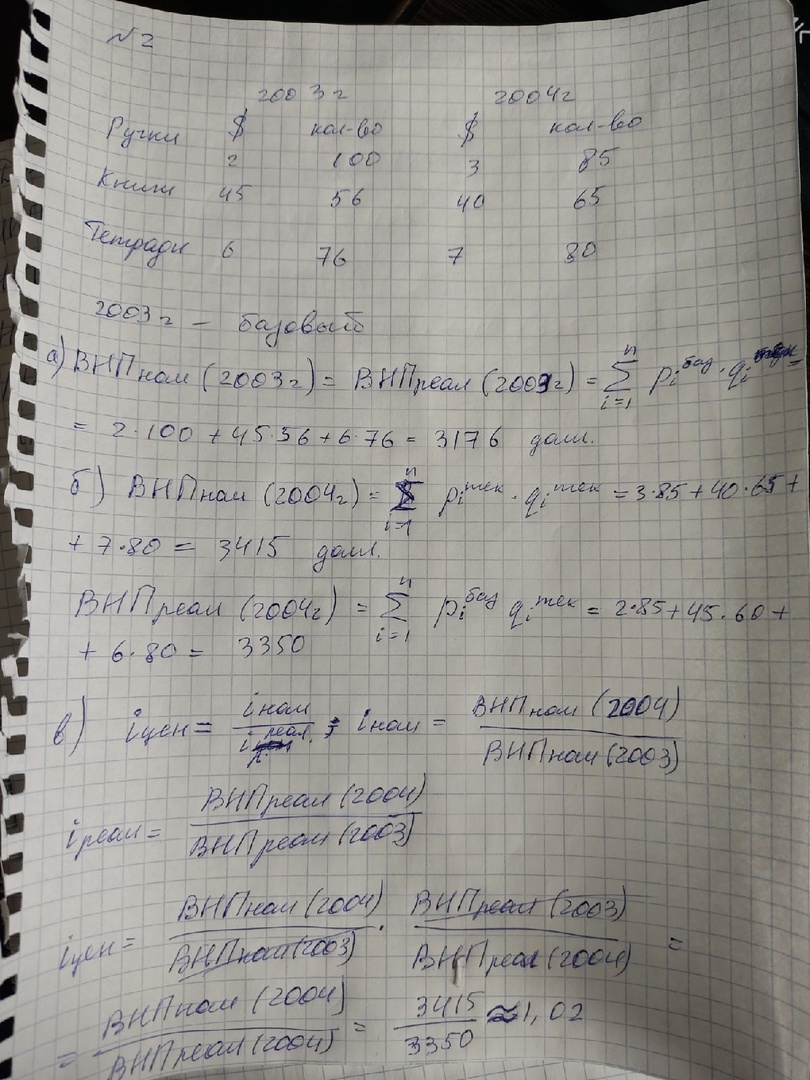 №2
2003г 2004г
Ручки $ кол-во $ кол-во
2 100 3 85
Книги 45 56 40 65
Тетради 6 76 7 80
2003г - базовый
а) ВНПном (2003г) = ВНПреал (2003г) = ∑ᵢ₌₁ⁿ pᵢ^баз · qᵢ =
= 2·100 + 45·56 + 6·76 = 3176 долл.
б) ВНПном (2004г) = ∑ᵢ₌₁ⁿ pᵢ^тек · qᵢ^тек = 3·85 + 40·65 +
+ 7·80 = 3415 долл.
ВНПреал (2004г) = ∑ᵢ₌₁ⁿ pᵢ^баз qᵢ^тек = 2·85 + 45·60 +
+ 6·80 = 3350
в) iцен = iном / iреал ; iном = ВНПном (2004) / ВНПном (2003)
iреал = ВНПреал (2004) / ВНПреал (2003)
iцен = ВНПном (2004) / ВНПном (2003) · ВНПреал (2003) / ВНПреал (2004) =
= ВНПном (2004) / ВНПреал (2004) = 3415 / 3350 ≈ 1,02